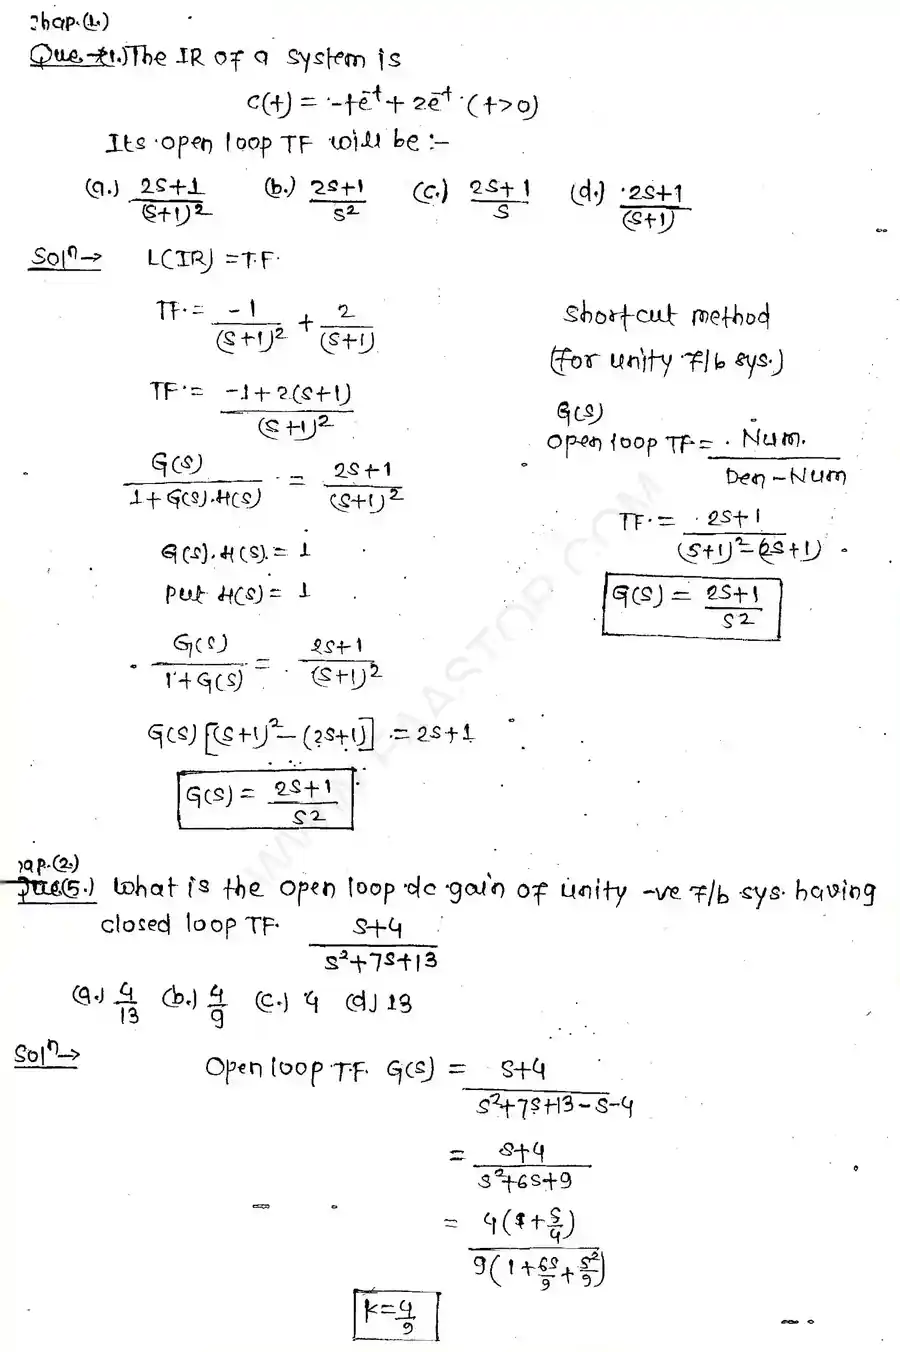 Chap.(1.)
Que.-#1.) The IR of a system is
c(t) = -te^-t + 2e^-t (t>0)
Its open loop TF will be :-
(a.) 2s+1/(s+1)^2 (b.) 2s+1/s^2 (c.) 2s+1/s (d.) 2s+1/(s+1)
Sol^n→ L(IR) = T.F.
TF. = -1/(s+1)^2 + 2/(s+1)
TF. = -1+2(s+1)/(s+1)^2
G(s)/1+G(s).H(s) = 2s+1/(s+1)^2
G(s).H(s) = 1
put H(s) = 1
G(s)/1+G(s) = 2s+1/(s+1)^2
G(s) [(s+1)^2 - (2s+1)] = 2s+1
G(s) = 2s+1/s^2
Shortcut method
(for unity f/b sys.)
G(s)
open loop TF = Num./Den-Num
TF. = 2s+1/(s+1)^2-(2s+1)
G(s) = 2s+1/s^2
ap.(2.)
Que(5.) What is the open loop dc gain of unity -ve f/b sys. having
closed loop TF. s+4/s^2+7s+13
(a.) 4/13 (b.) 4/9 (c.) 4 (d) 13
Sol^n→ Open loop T.F. G(s) = s+4/s^2+7s+13-s-4
= s+4/s^2+6s+9
= 4(1+s/4)/9(1+6s/9+s^2/9)
K=4/9